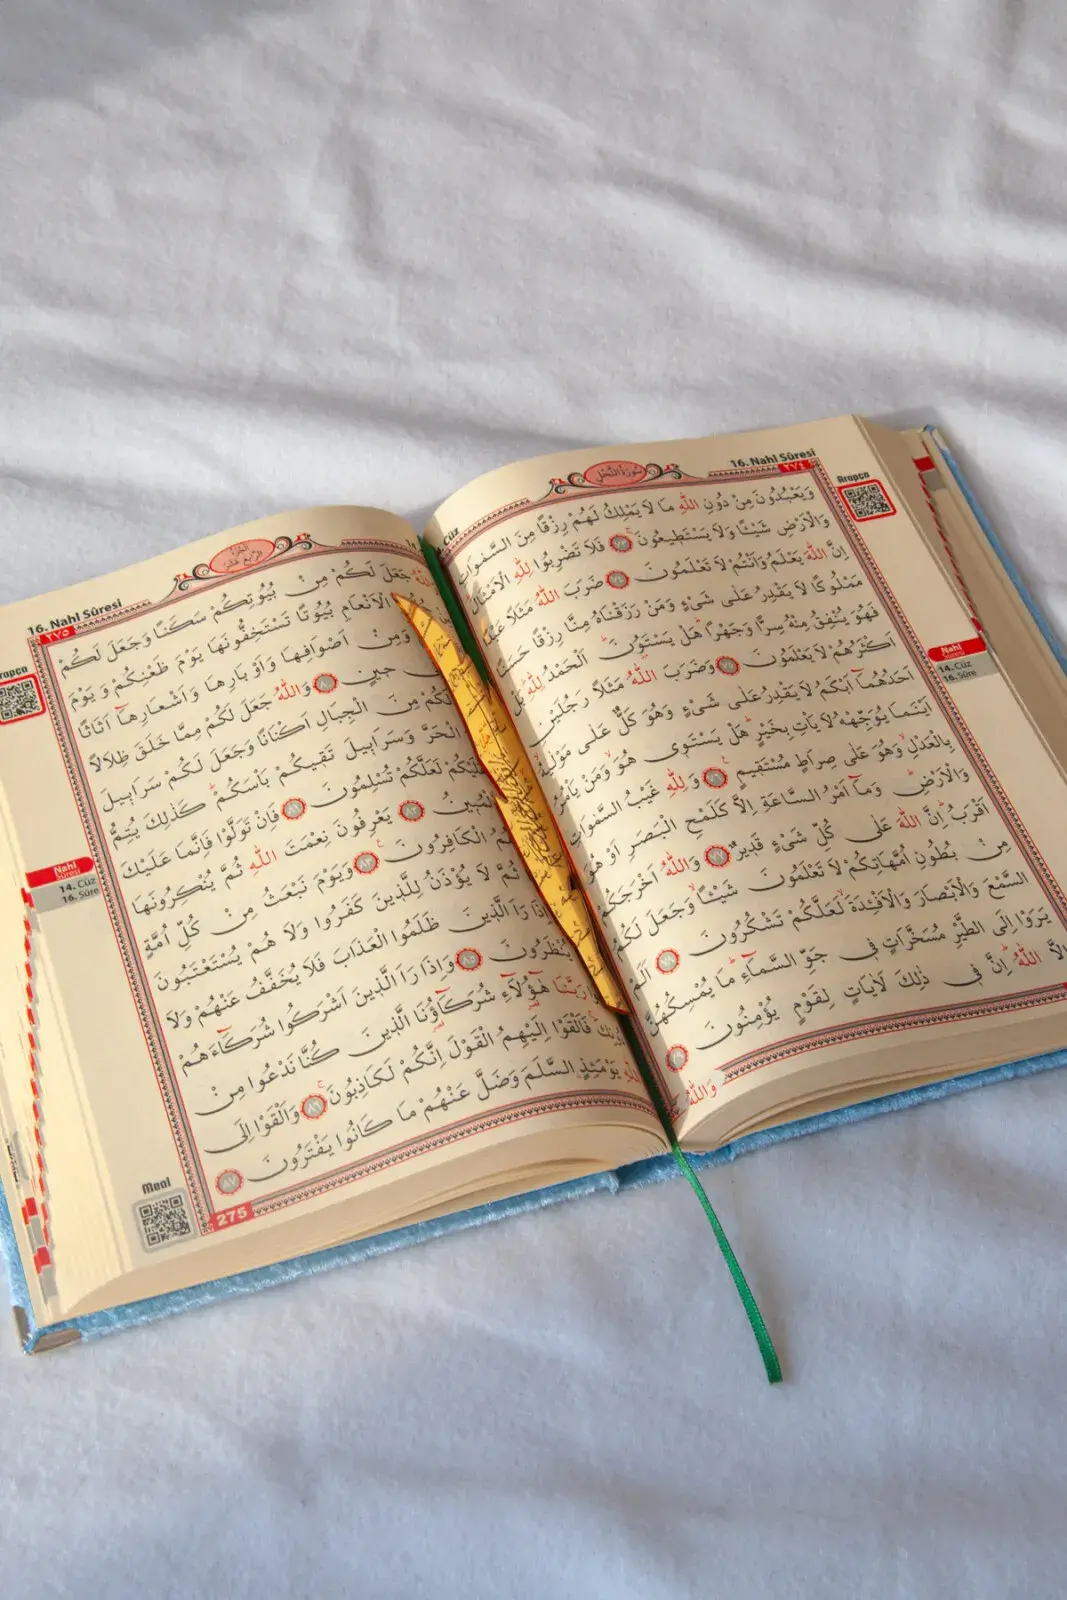 16. Nahl Sûresi
٢٧٤
سُورَةُ النَّحْلِ
Cüz
Arapça
وَيَعْبُدُونَ مِنْ دُونِ اللّٰهِ مَا لَا يَمْلِكُ لَهُمْ رِزْقًا مِنَ السَّمٰوَاتِ
وَالْاَرْضِ شَيْـًٔا وَلَا يَسْتَطٖيعُونَ ﴿٧٣﴾ فَلَا تَضْرِبُوا لِلّٰهِ الْاَمْثَالَ
اِنَّ اللّٰهَ يَعْلَمُ وَاَنْتُمْ لَا تَعْلَمُونَ ﴿٧٤﴾ ضَرَبَ اللّٰهُ مَثَلًا عَبْدًا
مَمْلُوكًا لَا يَقْدِرُ عَلٰى شَيْءٍ وَمَنْ رَزَقْنَاهُ مِنَّا رِزْقًا حَسَنًا
فَهُوَ يُنْفِقُ مِنْهُ سِرًّا وَجَهْرًا هَلْ يَسْتَوُونَ اَلْحَمْدُ لِلّٰهِ بَلْ
اَكْثَرُهُمْ لَا يَعْلَمُونَ ﴿٧٥﴾ وَضَرَبَ اللّٰهُ مَثَلًا رَجُلَيْنِ
اَحَدُهُمَٓا اَبْكَمُ لَا يَقْدِرُ عَلٰى شَيْءٍ وَهُوَ كَلٌّ عَلٰى مَوْلٰيهُ
اَيْنَمَا يُوَجِّهْهُ لَا يَأْتِ بِخَيْرٍ هَلْ يَسْتَوٖى هُوَ وَمَنْ يَأْمُرُ
بِالْعَدْلِ وَهُوَ عَلٰى صِرَاطٍ مُسْتَقٖيمٍ ﴿٧٦﴾ وَلِلّٰهِ غَيْبُ السَّمٰوَاتِ
وَالْاَرْضِ وَمَٓا اَمْرُ السَّاعَةِ اِلَّا كَلَمْحِ الْبَصَرِ اَوْ هُوَ
اَقْرَبُ اِنَّ اللّٰهَ عَلٰى كُلِّ شَيْءٍ قَدٖيرٌ ﴿٧٧﴾ وَاللّٰهُ اَخْرَجَكُمْ
مِنْ بُطُونِ اُمَّهَاتِكُمْ لَا تَعْلَمُونَ شَيْـًٔا وَجَعَلَ لَكُمُ
السَّمْعَ وَالْاَبْصَارَ وَالْاَفْـِٔدَةَ لَعَلَّكُمْ تَشْكُرُونَ ﴿٧٨﴾ اَلَمْ
يَرَوْا اِلَى الطَّيْرِ مُسَخَّرَاتٍ فٖى جَوِّ السَّمَٓاءِ مَا يُمْسِكُهُنَّ
اِلَّا اللّٰهُ اِنَّ فٖى ذٰلِكَ لَاٰيَاتٍ لِقَوْمٍ يُؤْمِنُونَ ﴿٧٩﴾
وَاللّٰهُ
Nahl
Sûresi
14. Cüz
16. Sûre
16. Nahl Sûresi
٢٧٥
اَلْجُزْءُ الرَّابِعَ عَشَرَ
Arapça
وَاللّٰهُ جَعَلَ لَكُمْ مِنْ بُيُوتِكُمْ سَكَنًا وَجَعَلَ لَكُمْ
الْاَنْعَامِ بُيُوتًا تَسْتَخِفُّونَهَا يَوْمَ ظَعْنِكُمْ وَيَوْمَ
وَمِنْ اَصْوَافِهَا وَاَوْبَارِهَا وَاَشْعَارِهَٓا اَثَاثًا
حٖينٍ ﴿٨٠﴾ وَاللّٰهُ جَعَلَ لَكُمْ مِمَّا خَلَقَ ظِلَالًا
لَكُمْ مِنَ الْجِبَالِ اَكْنَانًا وَجَعَلَ لَكُمْ سَرَابٖيلَ
الْحَرَّ وَسَرَابٖيلَ تَقٖيكُمْ بَأْسَكُمْ كَذٰلِكَ يُتِمُّ
عَلَيْكُمْ لَعَلَّكُمْ تُسْلِمُونَ ﴿٨١﴾ فَاِنْ تَوَلَّوْا فَاِنَّمَا عَلَيْكَ
الْمُبٖينُ ﴿٨٢﴾ يَعْرِفُونَ نِعْمَتَ اللّٰهِ ثُمَّ يُنْكِرُونَهَا
الْكَافِرُونَ ﴿٨٣﴾ وَيَوْمَ نَبْعَثُ مِنْ كُلِّ اُمَّةٍ
ثُمَّ لَا يُؤْذَنُ لِلَّذٖينَ كَفَرُوا وَلَا هُمْ يُسْتَعْتَبُونَ
وَاِذَا رَاَ الَّذٖينَ ظَلَمُوا الْعَذَابَ فَلَا يُخَفَّفُ عَنْهُمْ وَلَا
يُنْظَرُونَ ﴿٨٥﴾ وَاِذَا رَاَ الَّذٖينَ اَشْرَكُوا شُرَكَٓاءَهُمْ
رَبَّنَا هٰٓؤُلَٓاءِ شُرَكَٓاؤُنَا الَّذٖينَ كُنَّا نَدْعُوا مِنْ
دُونِكَ فَاَلْقَوْا اِلَيْهِمُ الْقَوْلَ اِنَّكُمْ لَكَاذِبُونَ ﴿٨٦﴾ وَاَلْقَوْا اِلَى
اللّٰهِ يَوْمَئِذٍ السَّلَمَ وَضَلَّ عَنْهُمْ مَا كَانُوا يَفْتَرُونَ ﴿٨٧﴾
Nahl
Sûresi
14. Cüz
16. Sûre
Meal
275